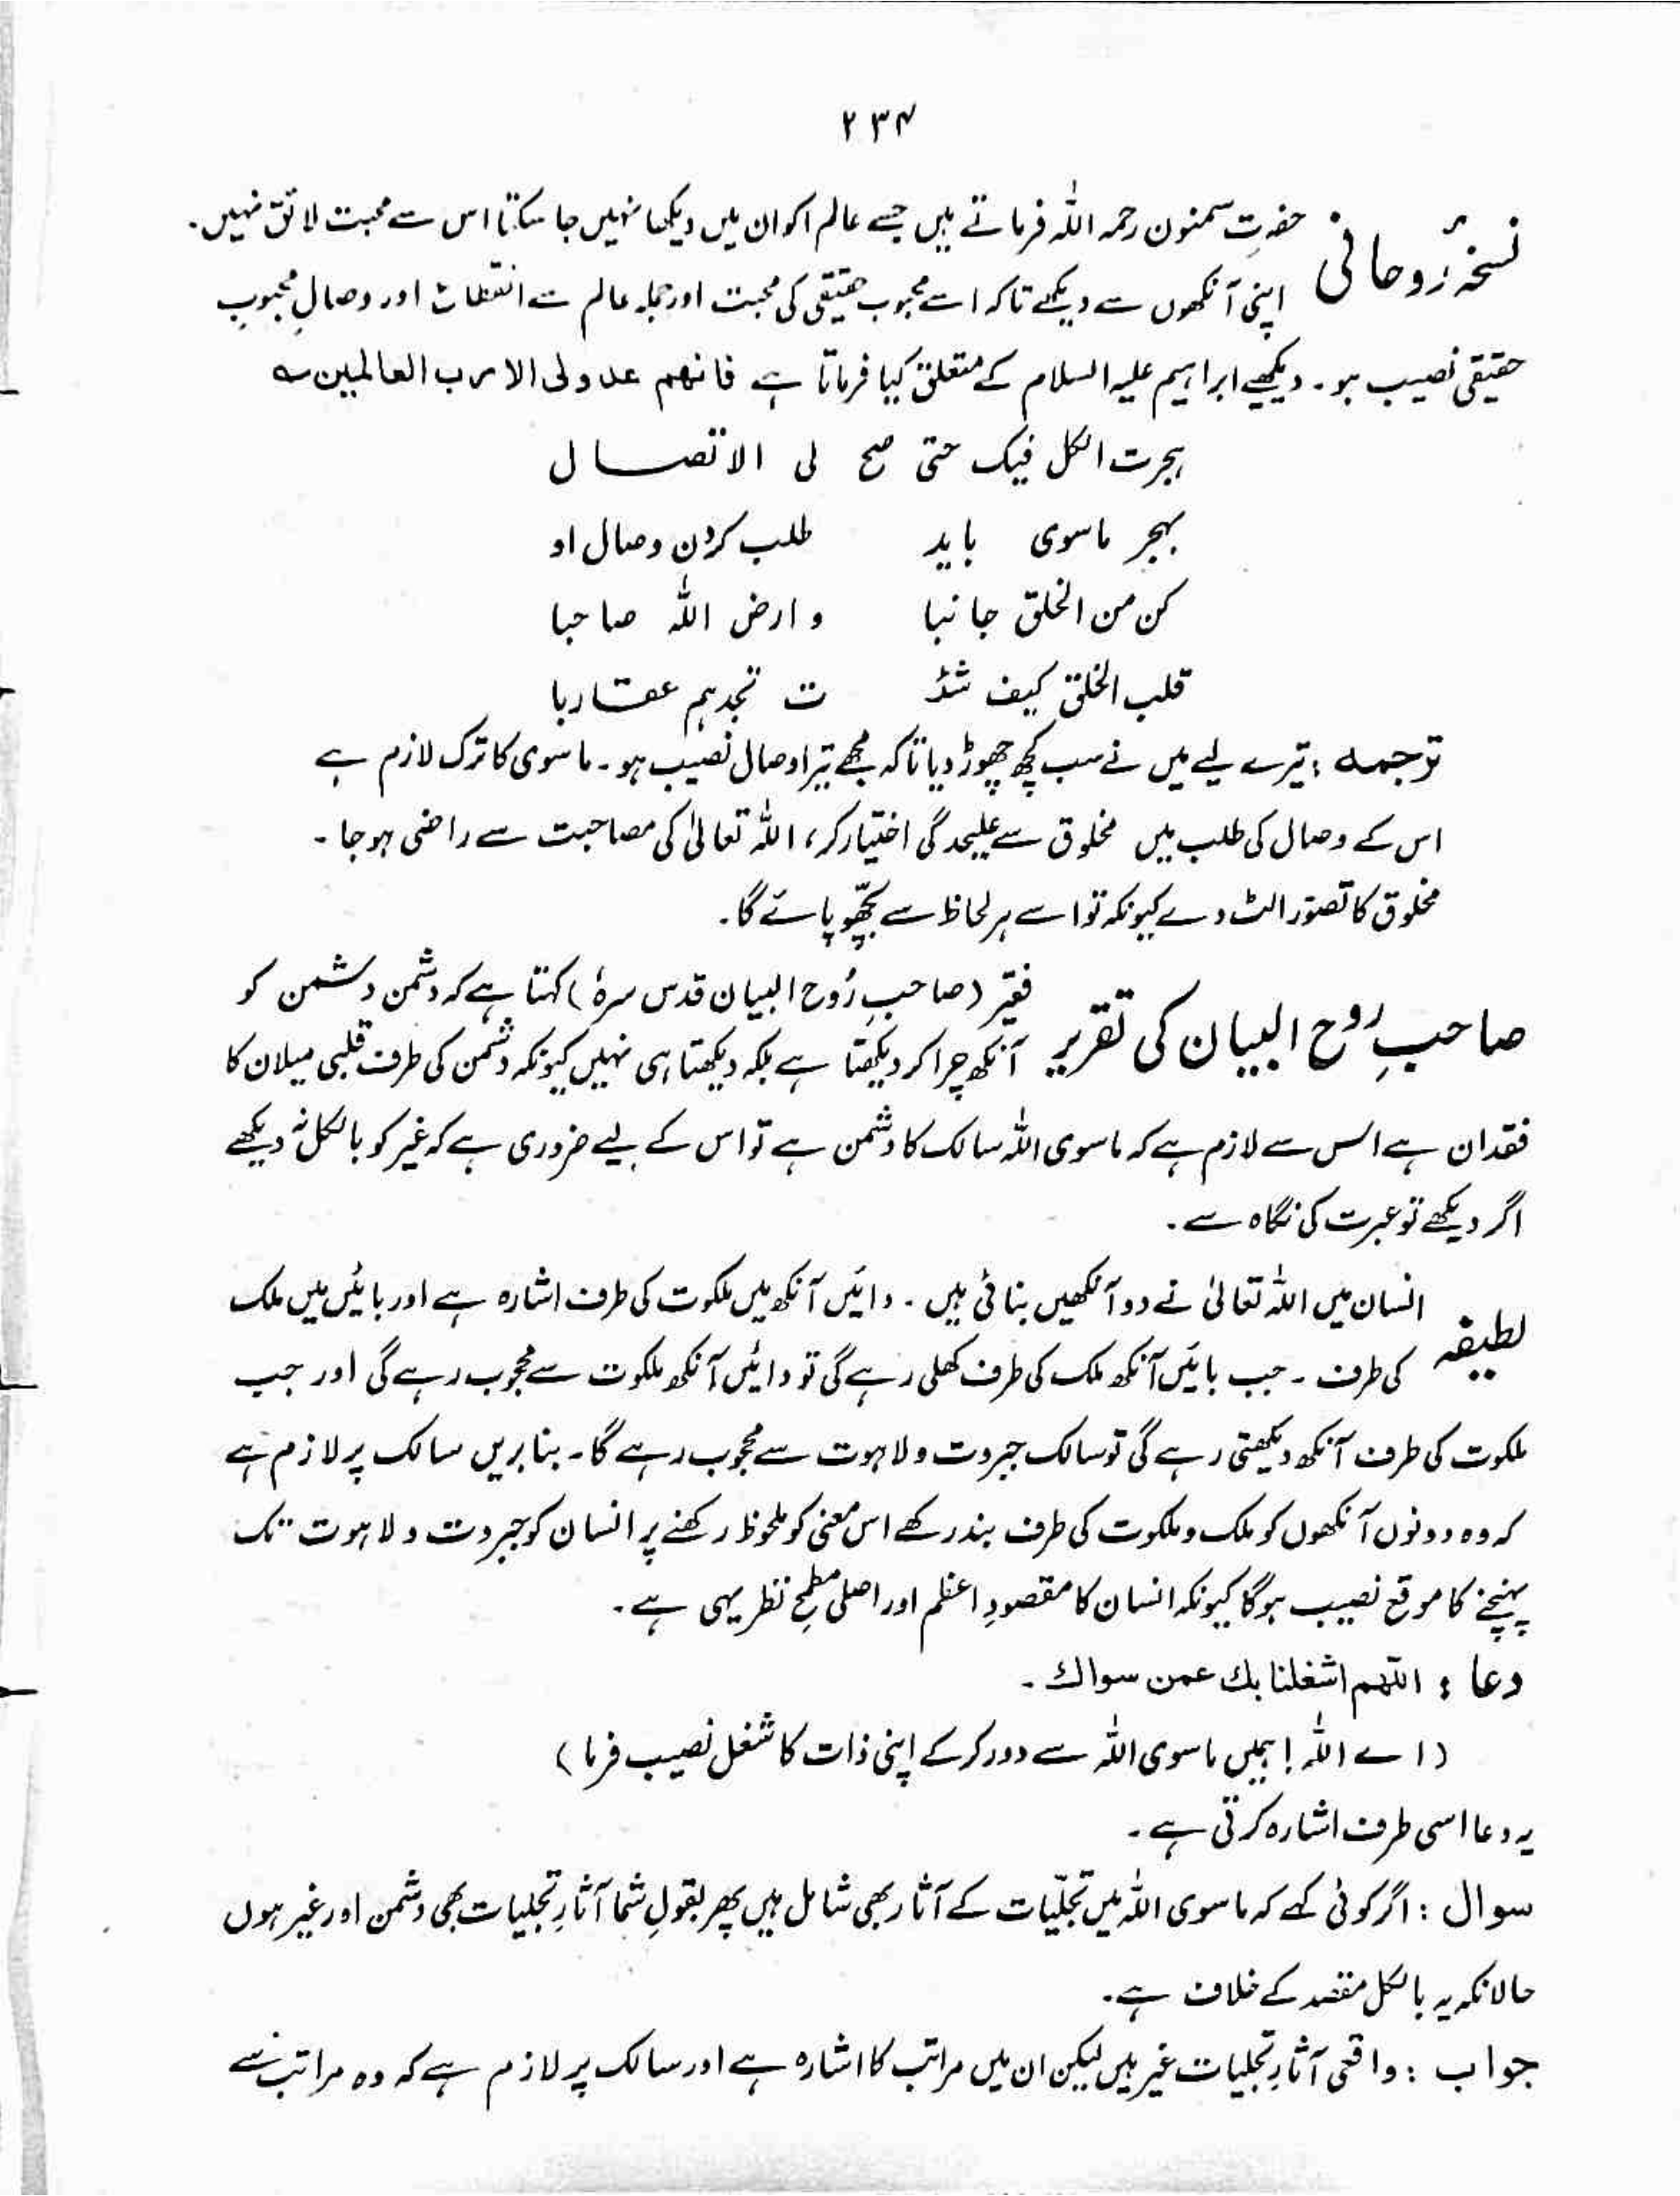 ۲۳۴
نسخۂ رُوحانی حضرتِ سمنون رحمہ اللہ فرماتے ہیں جسے عالم اکوان میں دیکھا نہیں جا سکتا اس سے محبت لائق نہیں۔
اپنی آنکھوں سے دیکھے تاکہ اسے محبوب حقیقی کی محبت اور جملہ عالم سے انقطاع اور وصالِ محبوبِ
حقیقی نصیب ہو۔ دیکھیے ابراہیم علیہ السلام کے متعلق کیا فرماتا ہے فانھم عدو لی الا رب العالمین سہ
ہجرت الکل فیک حتی صح لی الاتصال
بہجر ماسوی باید طلب کردن وصال او
کن من الخلق جانبا و ارض اللہ صاحبا
قلب الخلق کیف شئ ت تجدہم عقاربا
ترجمہ : تیرے لیے میں نے سب کچھ چھوڑ دیا تاکہ مجھے تیرا وصال نصیب ہو۔ ماسوی کا ترک لازم ہے
اس کے وصال کی طلب میں مخلوق سے علیحدگی اختیار کر، اللہ تعالیٰ کی مصاحبت سے راضی ہو جا ۔
مخلوق کا تصوّر الٹ دے کیونکہ تو اسے ہر لحاظ سے بچھّو پائے گا۔
صاحبِ روح البیان کی تقریر فقیر (صاحبِ رُوح البیان قدس سرہٗ) کہتا ہے کہ دشمن دشمن کو
آنکھ چرا کر دیکھتا ہے بلکہ دیکھتا ہی نہیں کیونکہ دشمن کی طرف قلبی میلان کا
فقدان ہے اس سے لازم ہے کہ ماسوی اللہ سالک کا دشمن ہے تو اس کے لیے ضروری ہے کہ غیر کو بالکل نہ دیکھے
اگر دیکھے تو عبرت کی نگاہ سے۔
لطیفہ انسان میں اللہ تعالیٰ نے دو آنکھیں بنائی ہیں۔ دائیں آنکھ میں ملکوت کی طرف اشارہ ہے اور بائیں میں ملک
کی طرف ۔ جب بائیں آنکھ ملک کی طرف کھلی رہے گی تو دائیں آنکھ ملکوت سے محجوب رہے گی اور جب
ملکوت کی طرف آنکھ دیکھتی رہے گی تو سالک جبروت و لاہوت سے محجوب رہے گا۔ بنا بریں سالک پر لازم ہے
کہ وہ دونوں آنکھوں کو ملک و ملکوت کی طرف بند رکھے اس معنی کو ملحوظ رکھنے پر انسان کو جبروت و لاہوت تک
پہنچنے کا موقع نصیب ہوگا کیونکہ انسان کا مقصودِ اعظم اور اصلی مطمحِ نظر یہی ہے۔
دعا : اللّٰھم اشغلنا بك عمن سواك ۔
(اے اللہ! ہمیں ماسوی اللہ سے دور کر کے اپنی ذات کا شغل نصیب فرما)
یہ دعا اسی طرف اشارہ کرتی ہے۔
سوال : اگر کوئی کہے کہ ماسوی اللہ میں تجلّیات کے آثار بھی شامل ہیں پھر بقولِ شما آثارِ تجلیات بھی دشمن اور غیر ہوں
حالانکہ یہ بالکل مقصد کے خلاف ہے۔
جواب : واقعی آثارِ تجلیات غیر ہیں لیکن ان میں مراتب کا اشارہ ہے اور سالک پر لازم ہے کہ وہ مراتب سے